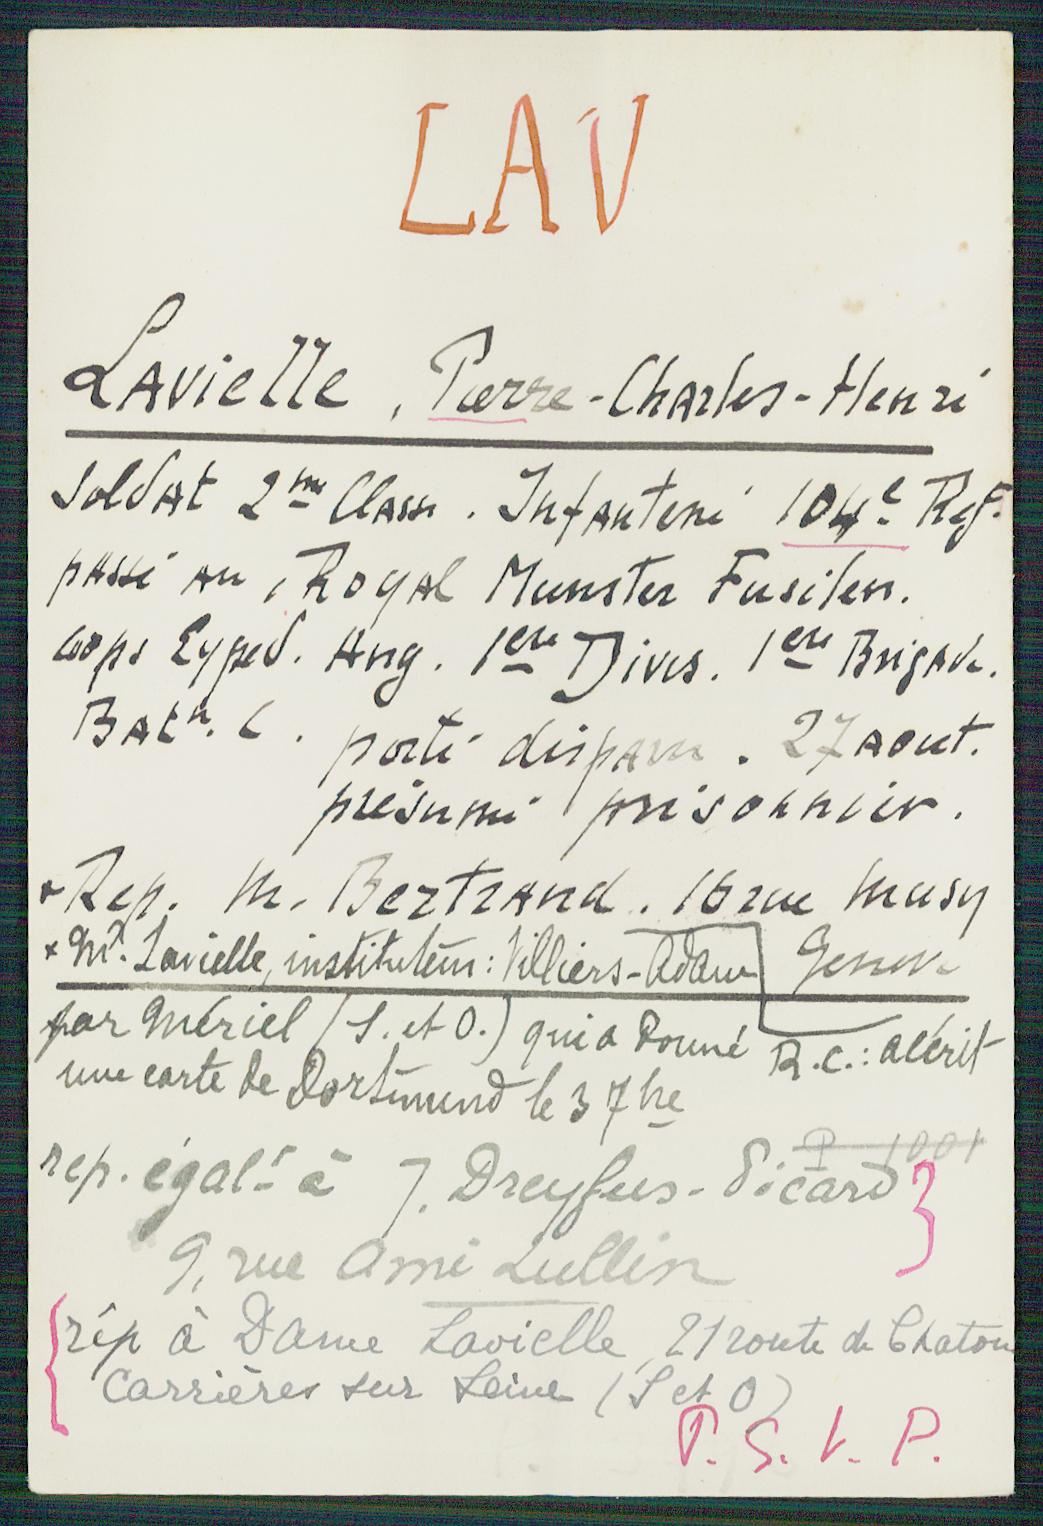 LAV
Lavielle, Pierre-Charles-Henri
Soldat 2me Classe. Infanterie 104e Reg.
passé au, Royal Munster Fusilen.
Corps Exped. Ang. 1ere Divis. 1ere Brigade.
Batn. C. porté disparu. 27 aout.
présumé prisonnier.
* Rep. M. Bertrand. 16 rue Musy
Genève
* Mr. Lavielle, instituteur: Villiers-Adam
par Mériel (S. et O.) qui a donné R.C.: a écrit
une carte de Dortmund le 3 7bre
P 1001
rep. égalt à J. Dreyfus-Picard
9, rue Ami Lullin
rép à Dame Lavielle, 21 route de Chatou
Carrières sur Seine (S et O)
T. S. V. P.